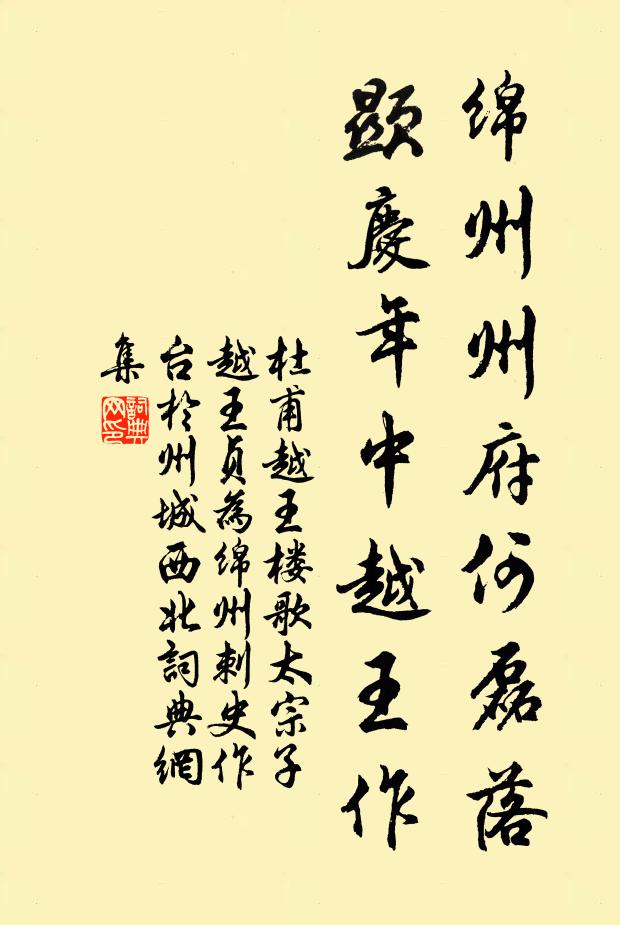 绵州州府何磊落
顯慶年中越王作
杜甫越王楼歌太宗子
越王貞為绵州刺史作
台於州城西北詞典網
集
詞典
网印